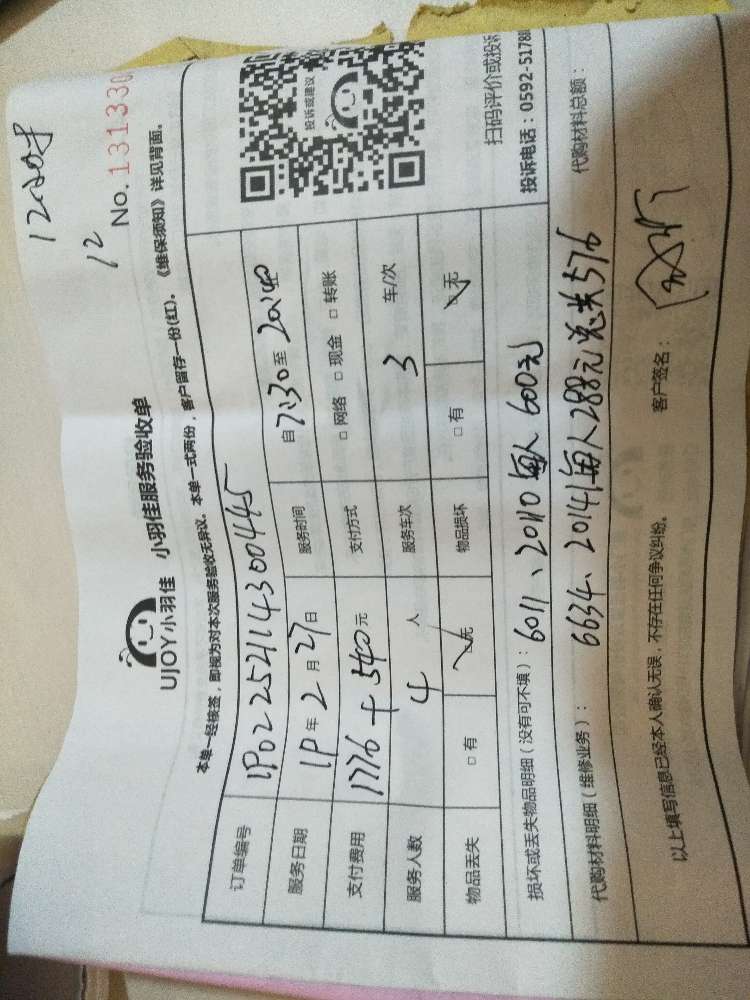 12小时
12
No.131330
UJOY小羽佳 小羽佳服务验收单
本单一经核签，即视为对本次服务验收无异议。本单一式两份，客户留存一份(红)。《维保须知》详见背面。
订单编号 1P02252114300445
服务日期 1P年2月27日 服务时间 自7:30至20:40
支付费用 1776+540元 支付方式 □网络 □现金 □转账
服务人数 4人 服务车次 3车/次
物品丢失 □有 □无 物品损坏 □有 □无
投诉或建议
扫码评价或投诉
投诉电话：0592-5178
损坏或丢失物品明细（没有可不填）：6011、20110每人600元
代购材料明细（维修业务）：6634、20141每人288元总共576 代购材料总额：
以上填写信息已经本人确认无误，不存在任何争议纠纷。 客户签名：